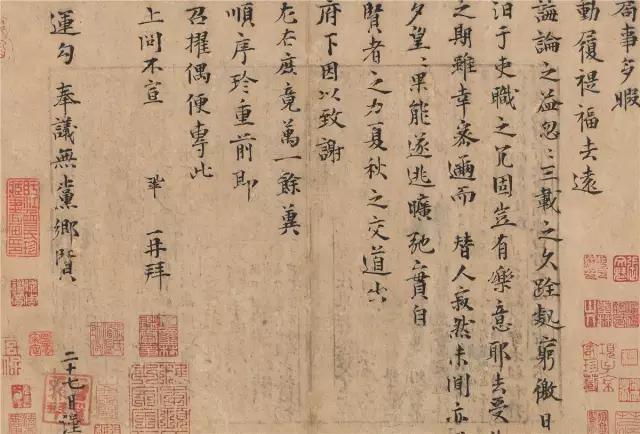 局事多暇
動履禔福去遠
誨論之益忽〻三載之久跧處窮徼日
汩于吏職之冗固豈有樂意耶去受
之期雖幸密邇而替人寂然未聞亦
夕望〻果能遂逃曠弛之責自
賢者之力夏秋之交道出
府下因以致謝
左右庶竟萬一餘冀
順序珍重前即
召擢偶便專此
上問不宣 鞏 再拜
運勾 奉議無黨鄉賢 二十七日謹